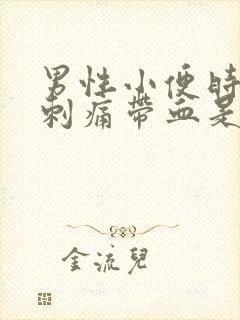 男性小便時
刺痛帶血是
金流兒